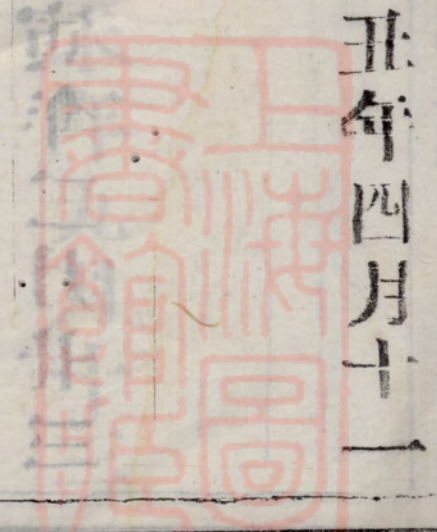 丑年四月十一
上海圖
書館藏